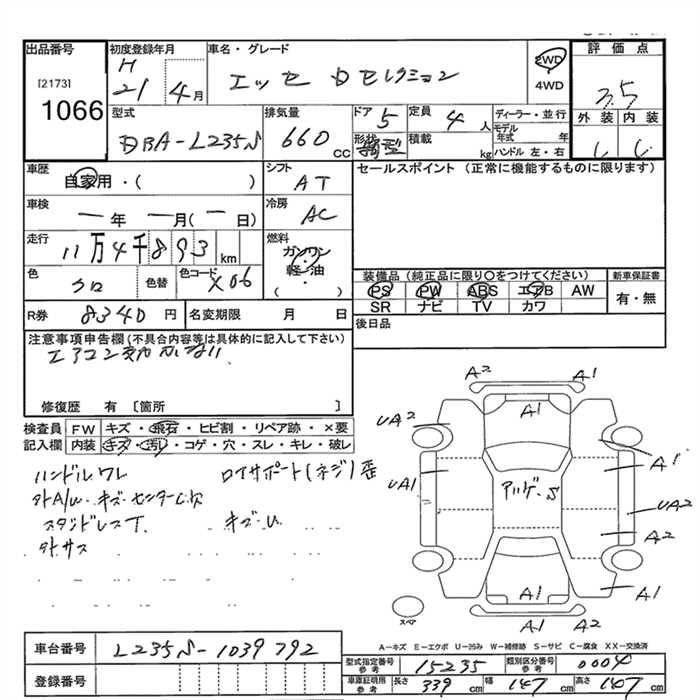 出品番号
[2173]
1066
初度登録年月
H
21 4月
車名・グレード
エッセ Dセレクション
2WD
4WD
評価点
3.5
外装 内装
型式
DBA-L235S
排気量
660 cc
ドア 5
形状
定員 4人
積載 kg
ディーラー・並行
モデル年式 年
ハンドル 左・右
車歴
自家用・( )
シフト
AT
セールスポイント (正常に機能するものに限ります)
車検
ー年 ー月(ー日)
冷房
AC
走行
11万4千893 km
燃料
ガソリン
軽・油
( )
色
クロ
色替
色コード X06
装備品(純正品に限り○をつけてください)
新車保証書
PS PW ABS エアB AW
SR ナビ TV カワ
有・無
R券 8340円
名変期限 月 日
後日品
注意事項申告欄(不具合内容等は具体的に記入して下さい)
エアコン
修復歴 有 [箇所 ]
検査員
記入欄
FW キズ・飛石・ヒビ割・リペア跡・×要
内装 キズ・汚れ・コゲ・穴・スレ・キレ・破レ
ハンドルワレ
キズ
A2 A1
A1
UA2
UA1
A1
UA2
A2
A1
A1
A1 A2
スペア
A-キズ E-エクボ U-凹み W-補修跡 S-サビ C-腐食 XX-交換済
車台番号 L235S-1039792
登録番号
型式指定番号 参考 15235
類別区分番号 参考 0004
車庫証明用 参考 長さ 339 cm 幅 147 cm 高さ 147 cm